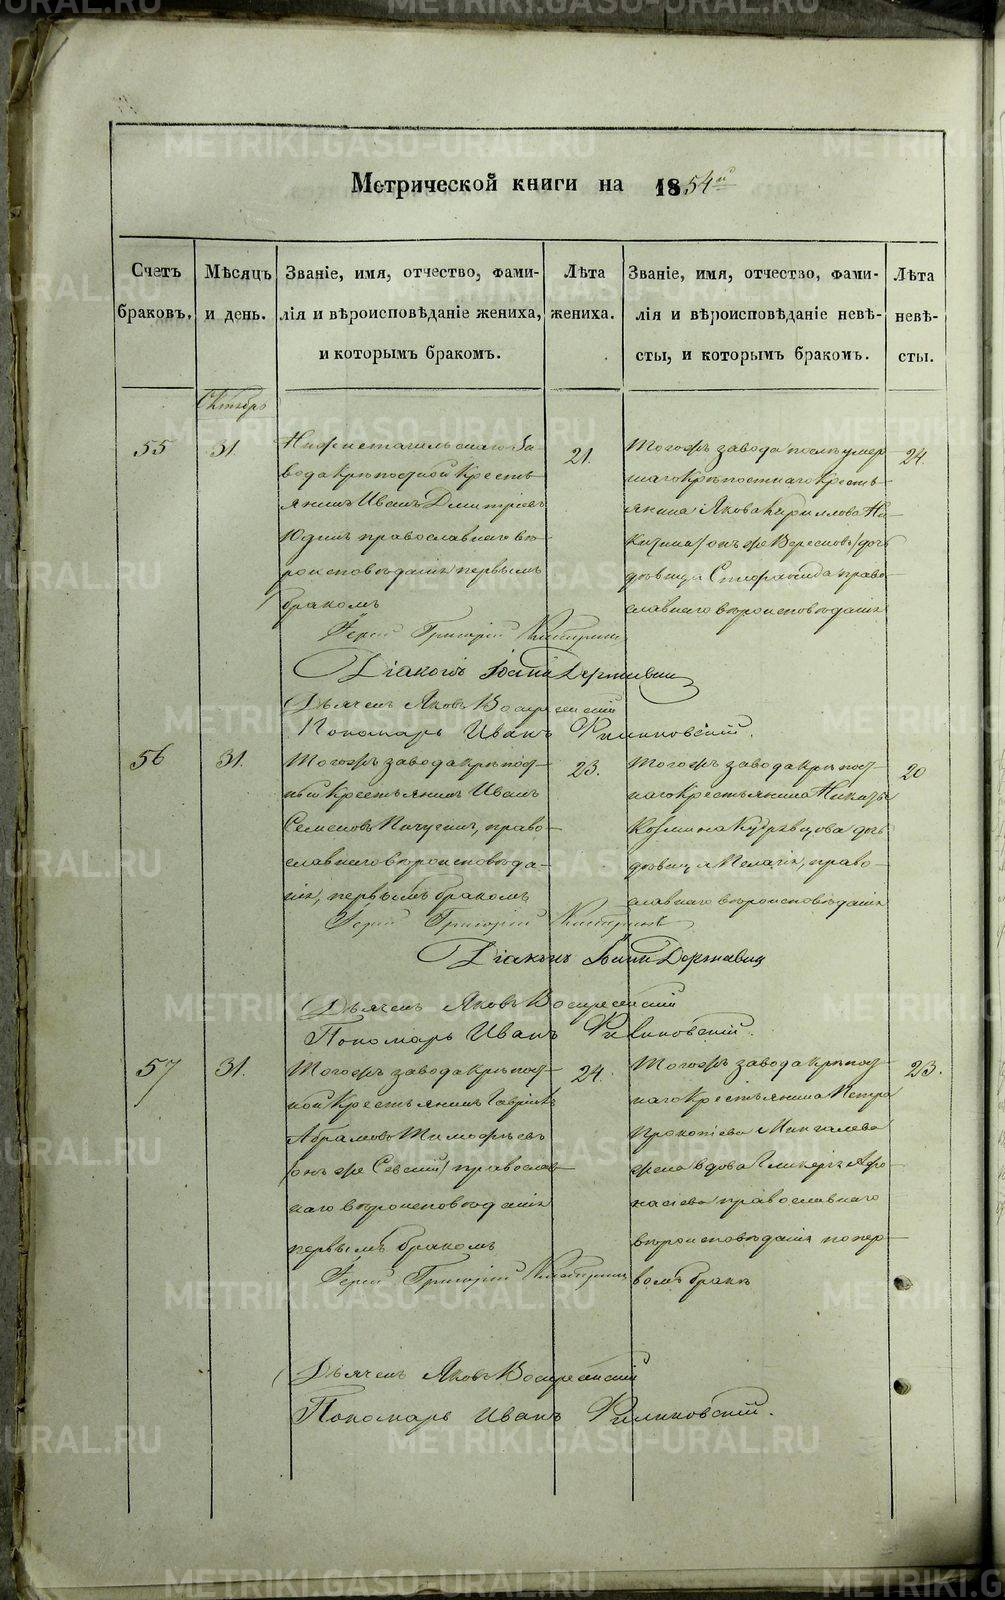 Метрической книги на 1854й
Счетъ браковъ.
Мѣсяцъ и день.
Званіе, имя, отчество, фами-
лія и вѣроисповѣданіе жениха,
и которымъ бракомъ.
Лѣта
жениха.
Званіе, имя, отчество, фами-
лія и вѣроисповѣданіе невѣ-
сты, и которымъ бракомъ.
Лѣта
невѣ-
сты.
Октябрь
55
31.
Нижнетагильскаго за-
вода крѣпостной кресть-
янинъ Иванъ Дмитріевъ
Юдинъ православнаго вѣ-
роисповѣданія первымъ
бракомъ
21.
Тогожъ завода послѣ умер-
шаго крѣпостнаго кресть-
янина Якова Кириллова Ни-
китина /онъ же Вересновъ/ дочь
дѣвица Стефанида право-
славнаго вѣроисповѣданія
24.
Іерей Григорій
Діаконъ Іоаннъ Державинъ
Дьячекъ Яковъ Воскресенскій
Пономарь Иванъ Филиковскій.
56
31.
Тогожъ завода крѣпост-
ный крестьянинъ Иванъ
Семеновъ Пичугинъ, право-
славнаго вѣроисповѣда-
нія, первымъ бракомъ
23.
Тогожъ завода крѣпост-
наго крестьянина Никиты
Козмина Кудрявцова дочь
дѣвица Пелагія, право-
славнаго вѣроисповѣданія
20
Іерей Григорій
Діаконъ Іоаннъ Державинъ
Дьячекъ Яковъ Воскресенскій
Пономарь Иванъ Филиковскій.
57
31.
Тогожъ завода крѣпост-
ной крестьянинъ Гавріилъ
Абрамовъ Тимофѣевъ
/онъ же Севскій/ православ-
наго вѣроисповѣданія
первымъ бракомъ
24.
Тогожъ завода крѣпост-
наго крестьянина Петра
Прокопіева Мингалева
жена вдова Гликерія Афо-
насіева православнаго
вѣроисповѣданія по пер-
вомъ бракѣ
23.
Іерей Григорій
Дьячекъ Яковъ Воскресенскій
Пономарь Иванъ Филиковскій.
METRIKI.GASO-URAL.RU